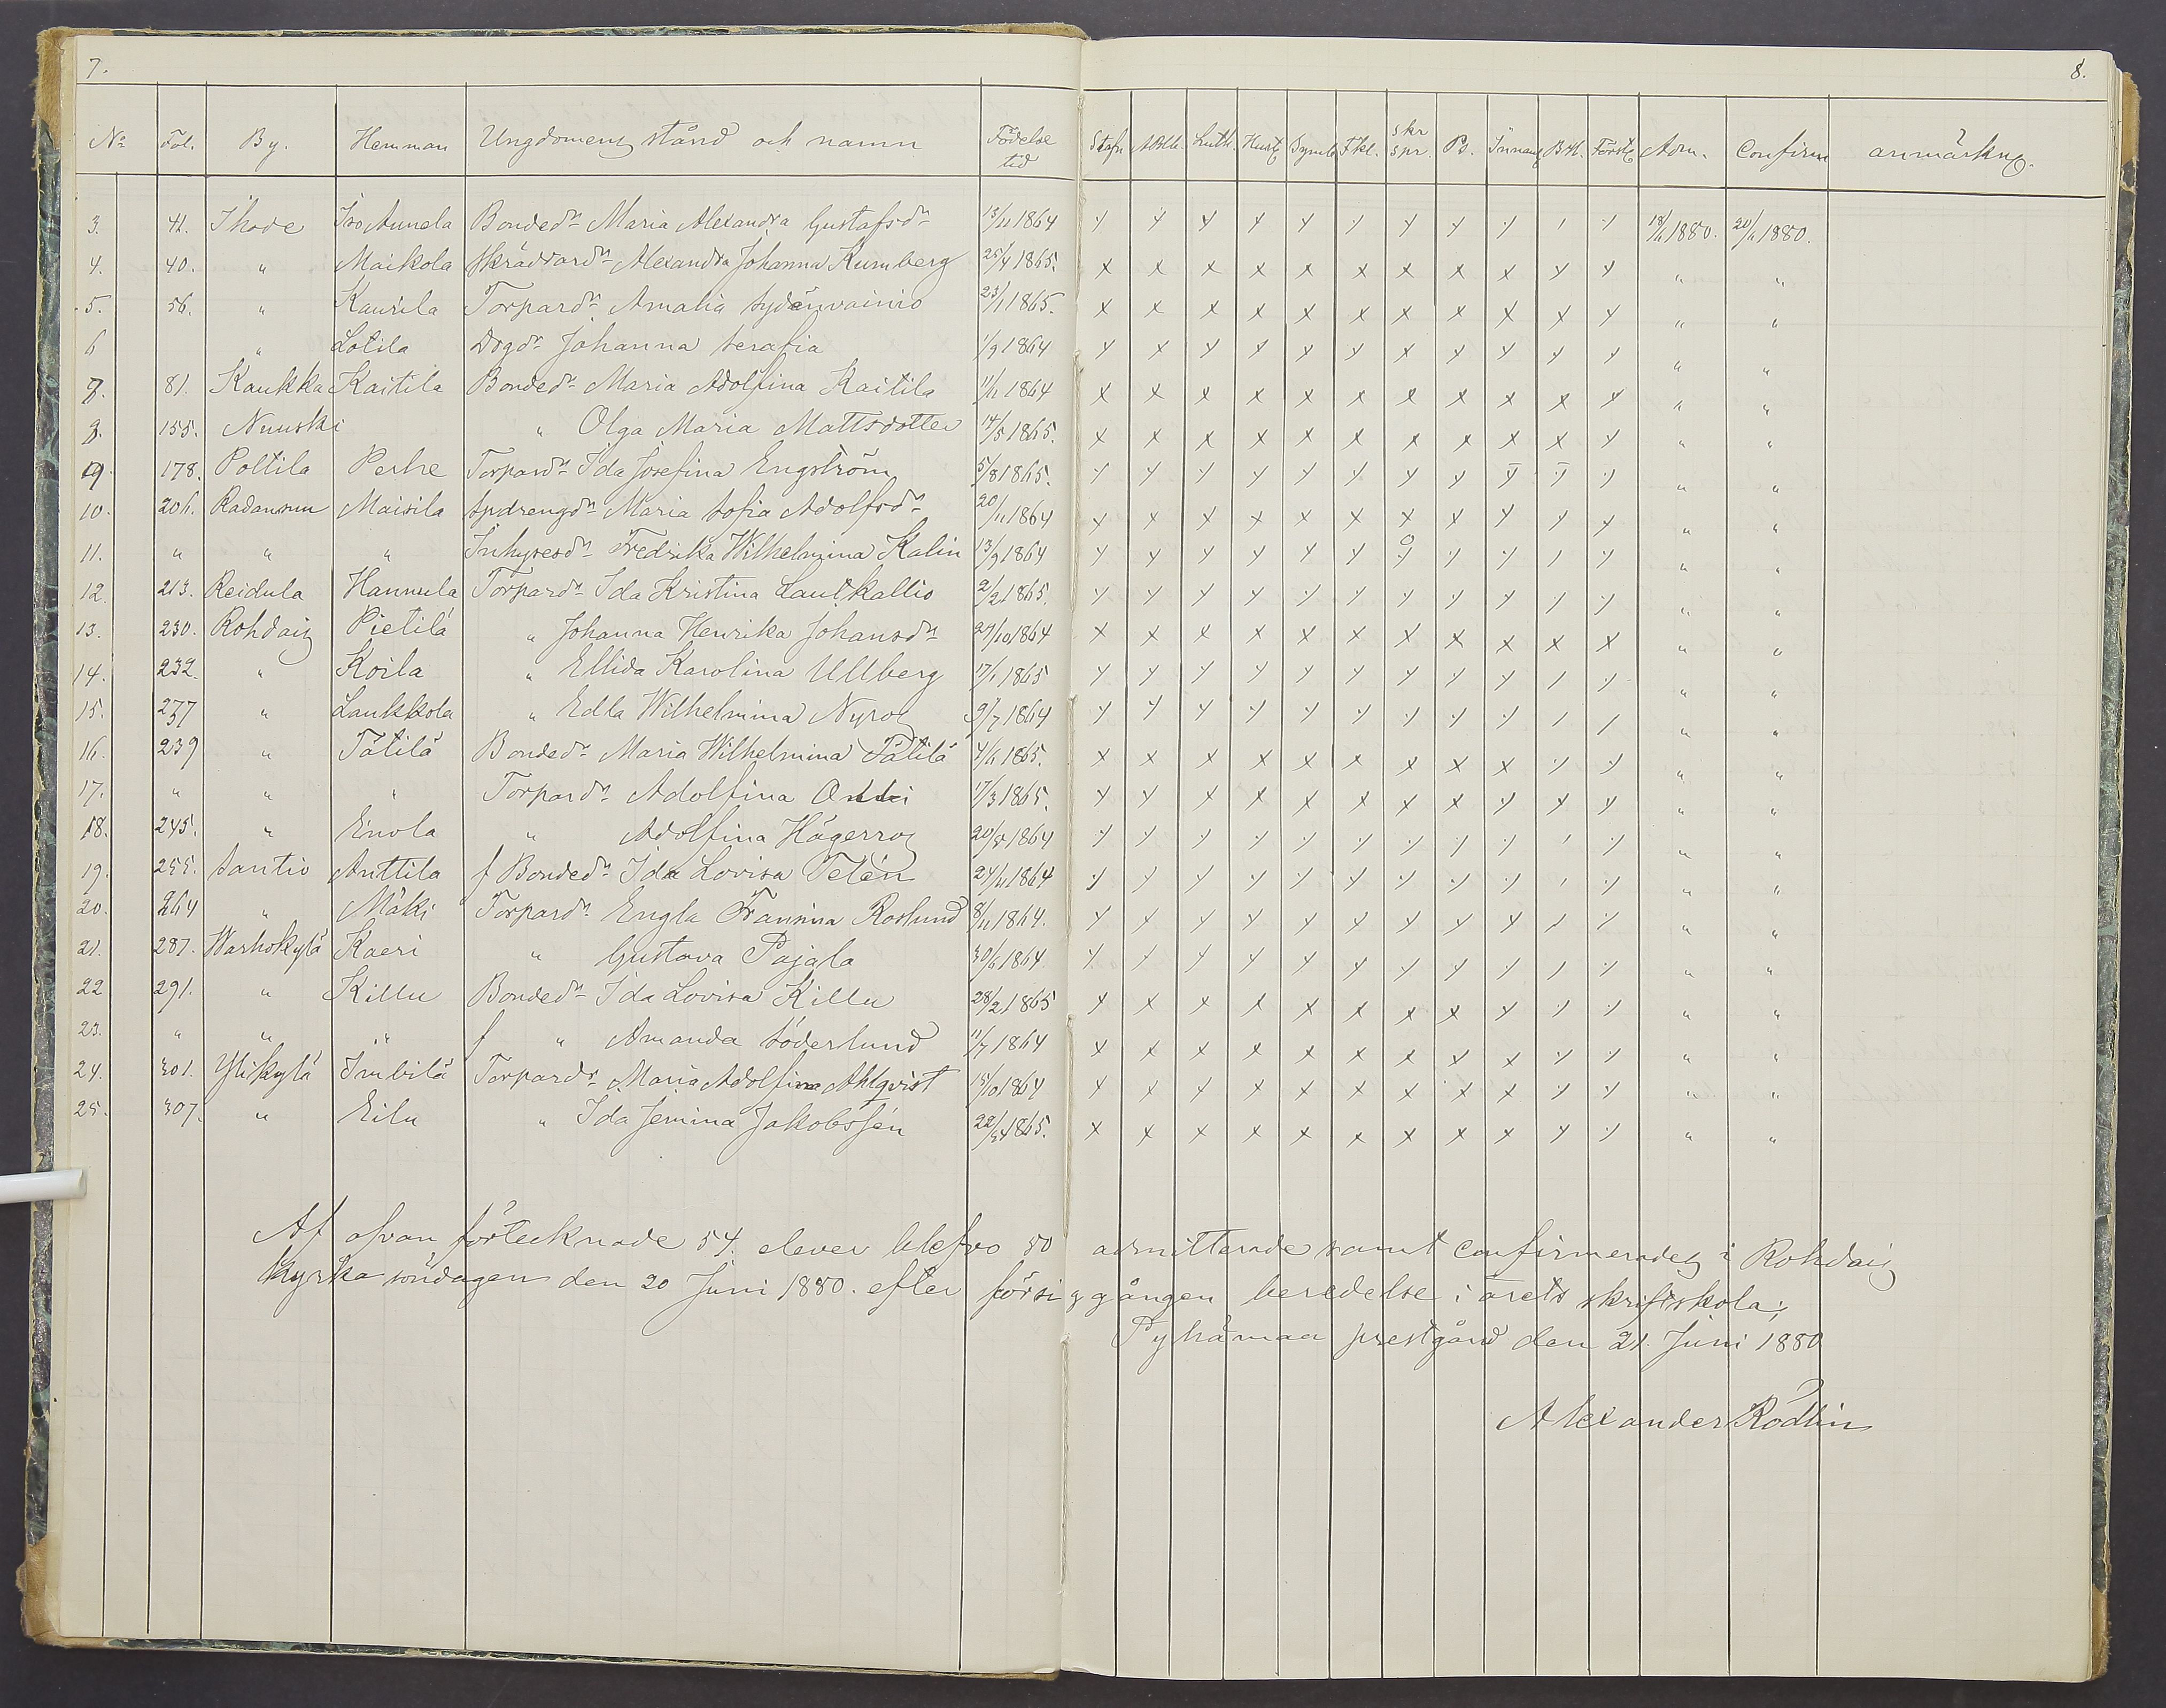 7.
8.
No Fol. By. Hemman Ungdomens stånd och namn Födelse tid Stafn Abcb. Luth. Hust. Symb. Fkl. skr spr. Ps. Innan B.H. Först. Adm. Confirm anmärkn.
3. 41. Ihode Iso Annela Bonded:r Maria Alexandra Gustafsd:r 13/11 1864 18/6 1880. 20/6 1880.
4. 40. " Maikola Skräddard:r Alexandra Johanna Kumberg 25/4 1865. " "
5. 56. " Kaurila Torpard:r Amalia Sydänvainio 23/1 1865. " "
6 " Lotila Drgd:r Johanna Serafia 1/9 1864 " "
7. 81. Kaukka Kaitila Bonded:r Maria Adolfina Kaitila 11/11 1864 " "
8. 155. Nuuski " Olga Maria Mattsdotter 14/5 1865. " "
9. 178. Poltila Perhe Torpard:r Ida Josefina Engström 5/8 1865. " "
10. 206. Radansuu Maisila Spdrengd:r Maria Sofia Adolfsd:r 20/11 1864 " "
11. " " " Inhysesd:r Fredrika Wilhelmina Kalin 13/9 1864 " "
12. 213. Reidula Hannula Torpard:r Ida Kristina Lautkallio 2/2 1865. " "
13. 230. Rohdais Pietilä " Johanna Henrika Johansd:r 27/10 1864 " "
14. 232. " Koila " Ellida Karolina Ullberg 17/1 1865 " "
15. 237 " Laukkola " Edla Wilhelmina Nyroos 9/7 1864 " "
16. 239 " Tätilä Bonded:r Maria Wilhelmina Tätilä 4/6 1865. " "
17. " " " Torpard:r Adolfina Onkki 17/3 1865. " "
18. 245. " Einola " Adolfina Hägerroos 20/8 1864 " "
19. 255. Santio Anttila f Bonded:r Ida Lovisa Telén 24/11 1864 " "
20. 264 " Mäki Torpard:r Engla Frannina Roslund 8/11 1864. " "
21. 287. Warhokylä Kaeri " Gustava Pajala 30/6 1864 " "
22 291. " Killu Bonded:r Ida Lovisa Killu 28/2 1865 " "
23. " " " f " Amanda Söderlund 11/7 1864 " "
24. 301. Ylikylä Imbilä Torpard:r Maria Adolfina Ahlqvist 15/10 1864 " "
25. 307. " Eilu " Ida Jemina Jakobssén 22/4 1865. " "
Af ofvan förtecknade 54. elever blefvo 50 admitterade samt confirmerades i Rohdais
kyrka söndagen den 20 Juni 1880. efter försiggången beredelse i årets skriftskola;
Pyhämaa prestgård den 21. Juni 1880
Alexander Rödlin